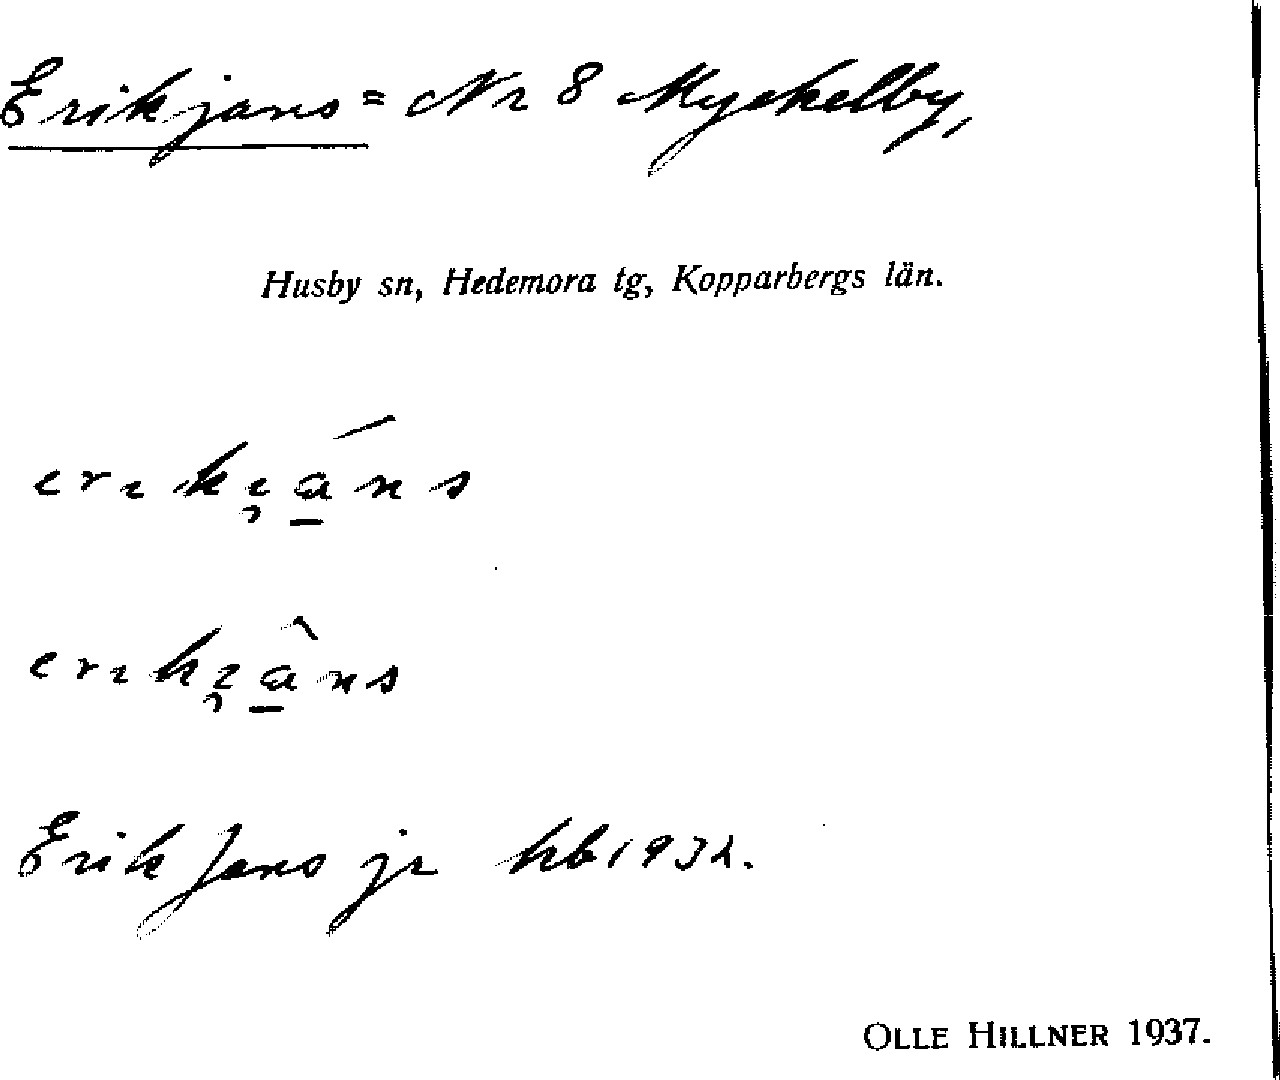 Erikjans = Nr 8 Myckelby,
Husby sn, Hedemora tg, Kopparbergs län.
Erik Jans jr hb 1932.
OLLE HILLNER 1937.